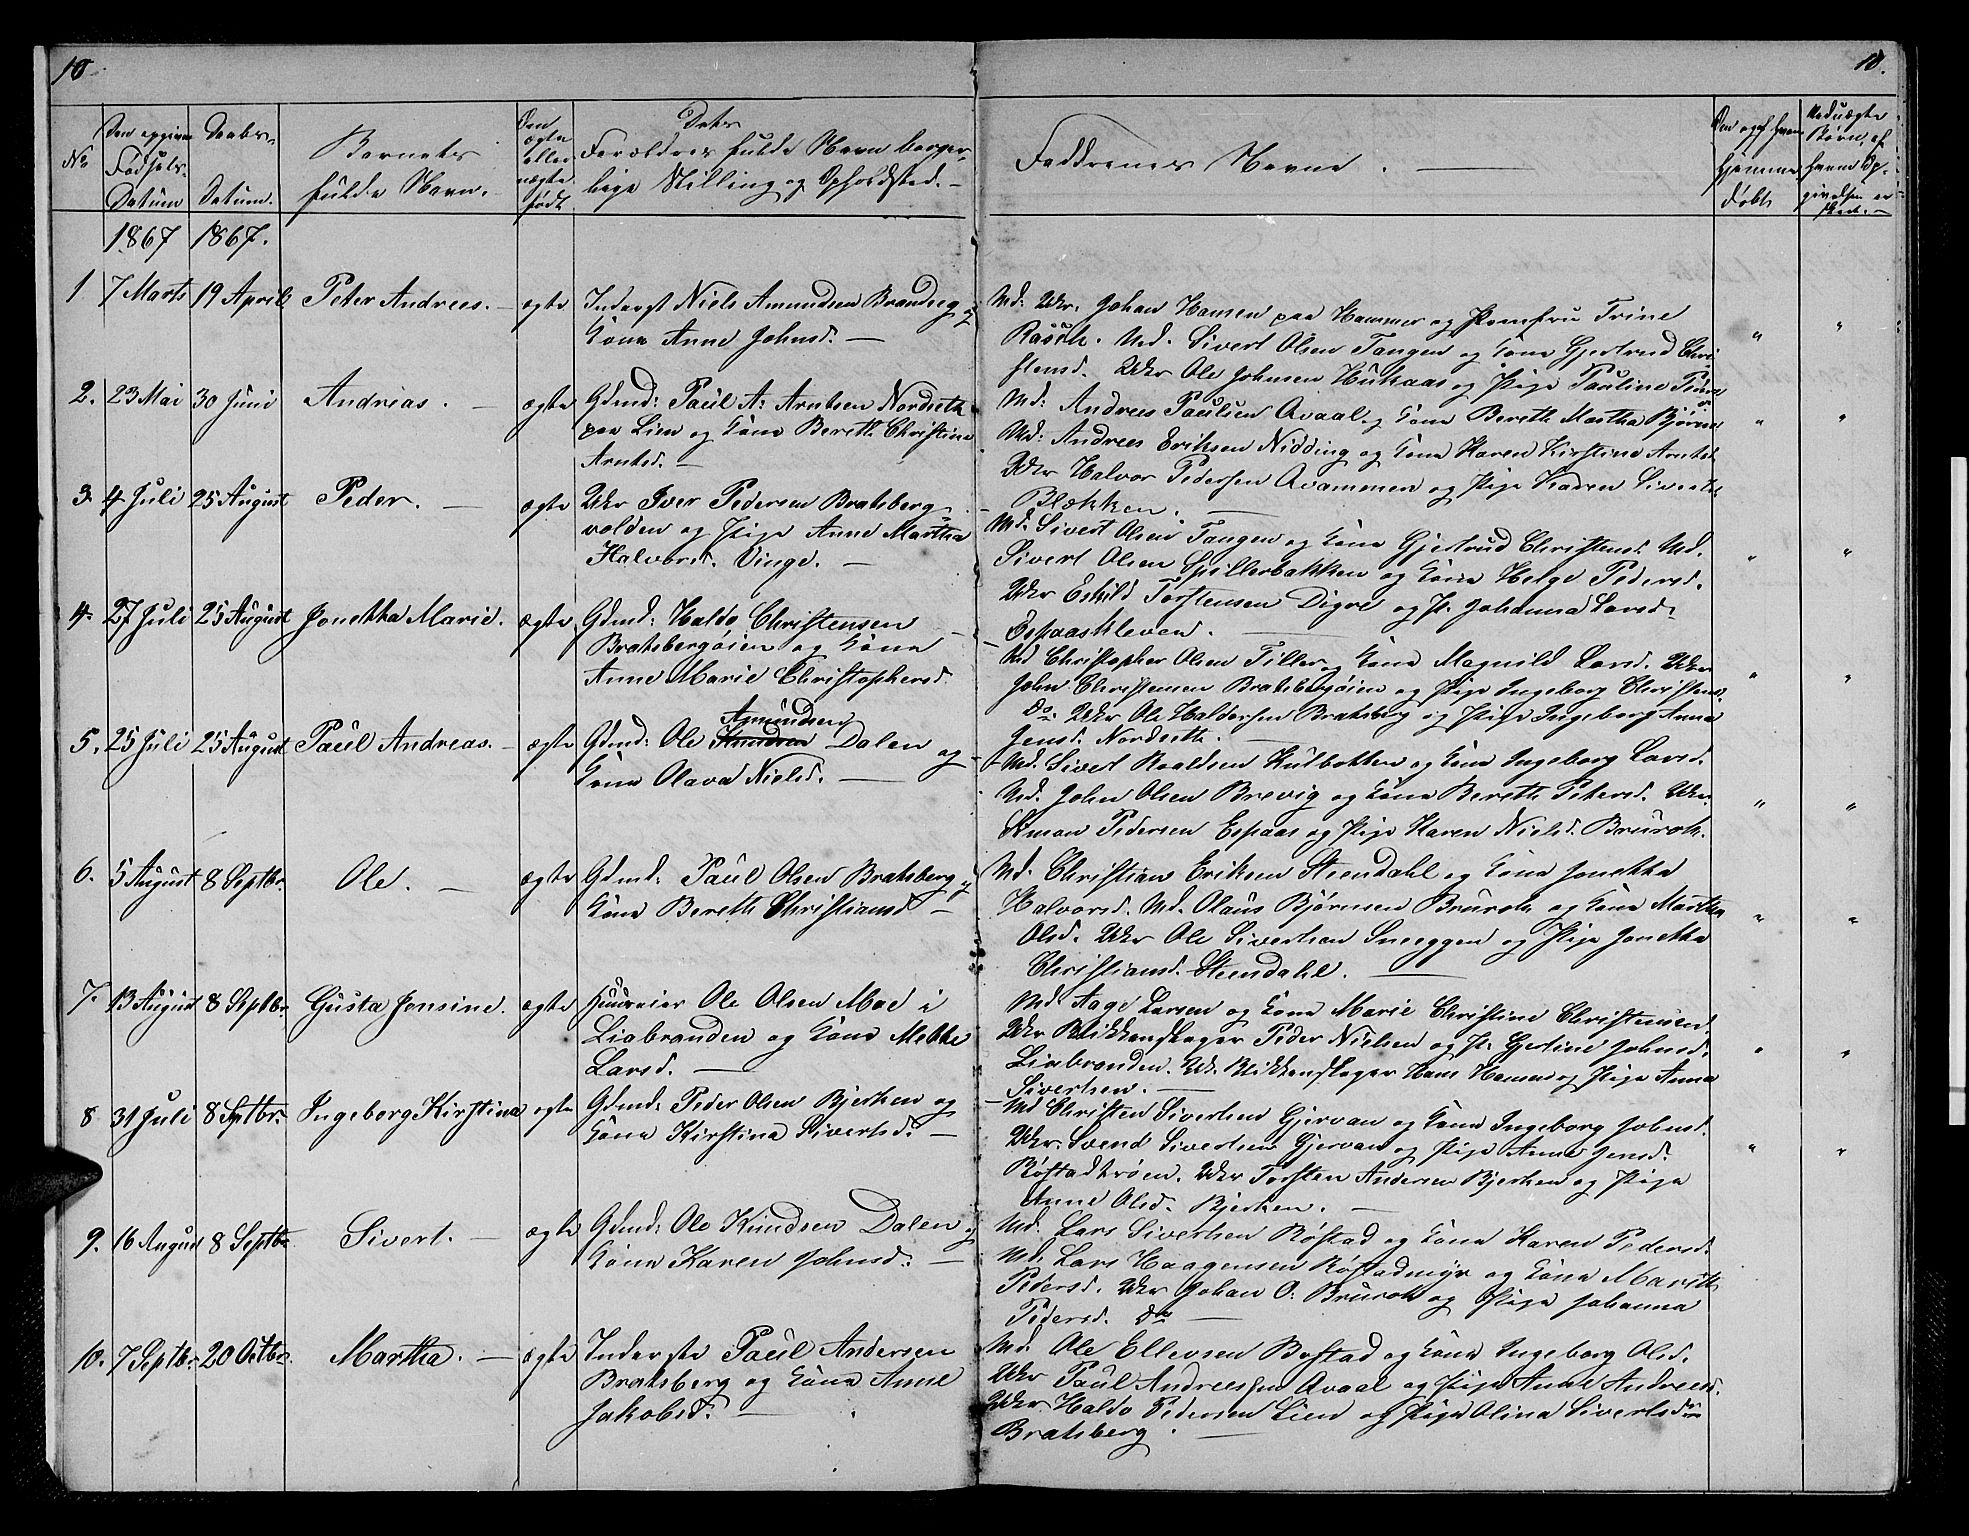 10
10.
No
Den opgivne Fødsels-Datum
Daabs-Datum.
Barnets fulde Navn.
Om ægte eller uægte født
Dets Forældres fulde Navn borger-
lige Stilling og Opholdssted. —
Faddrenes Navne. —
Om og af hvem hjemme døbt
Ved uægte Børn, af hvem Op-
givelsen er skeet. —
1867 1867.
1 7 Marts 19 April Peter Andreas. — ægte Inderst Niels Amundsen Brandseg og
Kone Anne Johnsd. —
Md: Ukr. Johan Hansen paa Hammer og Jomfru Trine
Rasch. Md. Sivert Olsen Tangen og Kone Gjertrud Chri-
stensd. Ukr Ole Johnsen Hukaas og Pige Pauline Peders
2. 23 Mai 30 Juni Andreas. — ægte Gdmd: Paul A: Arntsen Nordseth
paa Lien og Kone Bereth Christine
Arntsd. —
Md: Andreas Paulsen Avaal og Kone Bereth Martha Bjørnsd
Md: Andreas Eriksen Nidding og Kone Karen Kirstine Arntsd.
Ukr Halvor Pedersen Avammen og Pige Karen Sivertsd.
Blækken. —
3. 4 Juli 25 August Peder. — ægte Ukr Iver Pedersen Bratsberg-
volden og Pige Anne Martha
Halvorsd. Vinge. —
Md. Sivert Olsen Tangen og Kone Gjertrud Christensd. Md.
Sivert Olsen Spillerbakken og Kone Helge Pedersd.
Ukr Eskild Torstensen Digre og P. Johanna Larsd.
Espaaskleven. —
4. 27 Juli 25 August Jonetta Marie. ægte Gdmd: Haldo Christensen
Bratsbergøien og Kone
Anne Marie Christophersd.
Md Christopher Olsen Tiller og Kone Magnild Larsd. Ukr
John Christensen Bratsbergøien og Pige Ingeborg Christens-
Do: Ukr Ole Haldorsen Bratsberg og Pige Ingeborg Anna
Jensd. Nordseth. —
5. 25 Juli 25 August Paul Andreas. — ægte Gdmd: Ole Knudsen Amundsen Dalen og
Kone Olava Nielsd. —
Md. Sivert Roaldsen Kulbakken og Kone Ingeborg Larsd.
Md. John Olsen Brevig og Kone Bereth Petersd. Ukr.
Simon Pedersen Espaas og Pige Karen Nielsd. Brurok.
6. 5 August 8 Septbr. Ole. — ægte Gdmd: Paul Olsen Bratsberg og
Kone Bereth Christiansd —
Md. Christian Eriksen Steendahl og Kone Jonetta
Halvorsd. Md. Olaus Bjørnsen Brurok og Kone Martha
Olsd. Ukr Ole Sivertsen Sneeggen og Pige Jonetta
Christiansd. Steendahl. —
7. 13 August 8 Septbr. Gusta Jensine. ægte Huuseier Ole Olsen Moe i
Liabranden og Kone Mette
Larsd. —
Md. Aage Larsen og Kone Marie Christine Christensend.
Ukr Blikkenslager Peder Nielsen og P. Gjertine Johnsd.
Liabranden. Uk. Blikkenslager Hans Hansen og Pige Anna
Sivertsen. —
8 31 Juli 8 Sptbr. Ingeborg Kirstina ægte Gdmd: Peder Olsen Bjerken og
Kone Kirstina Sivertsd. —
Md Christen Sivertsen Gjervan og Kone Ingeborg Johnsd.
Ukr. Svend Sivertsen Gjervan og Pige Anne Jensd.
Røstadtrøen. Ukr Torsten Andersen Bjerken og Pige
Anne Olsd. Bjerken. —
9. 16 August 8 Septbr Sivert. — ægte Gdmd: Ole Knudsen Dalen og
Kone Karen Johnsd. —
Md. Lars Sivertsen Røstad og Kone Karen Pedersd.
Md. Lars Haagensen Røstadmyr og Kone Marith
Pedersd. Ukr Johan O. Brurok og Pige Johanna
Pedersd. Do —
10. 7 Septbr. 20 Octbr. Martha. — ægte Inderste Paul Andersen
Bratsberg og Kone Anne
Jakobsd. —
Md. Ole Ellevsen Bostad og Kone Ingeborg Olsd.
Ukr Paul Andreassen Avaal og Pige Anne Andreasd.
Ukr Haldo Pedersen Lien og Pige Olina Sivertsd
Bratsberg. —